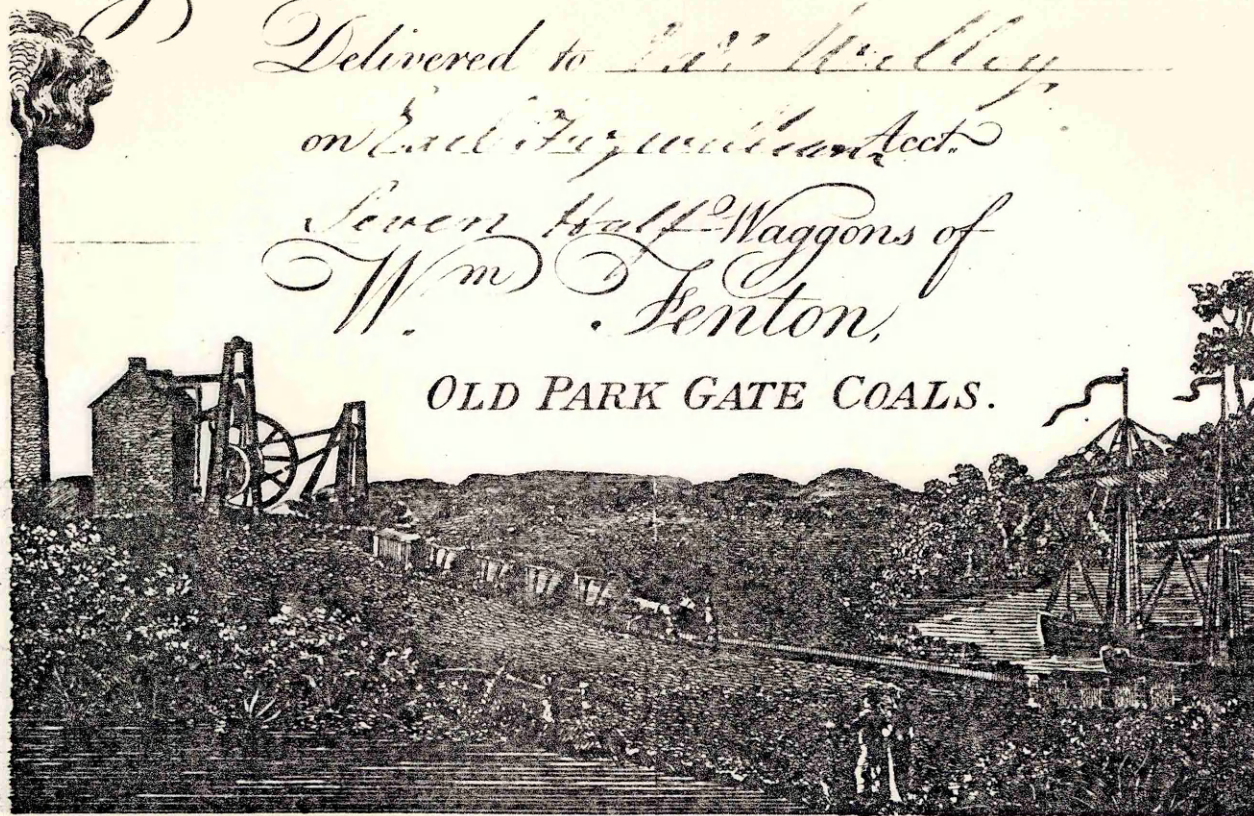 Delivered to
on Earl Fitzwilliam Acct.
Seven Half Waggons of
Wm. Fenton,
OLD PARK GATE COALS.